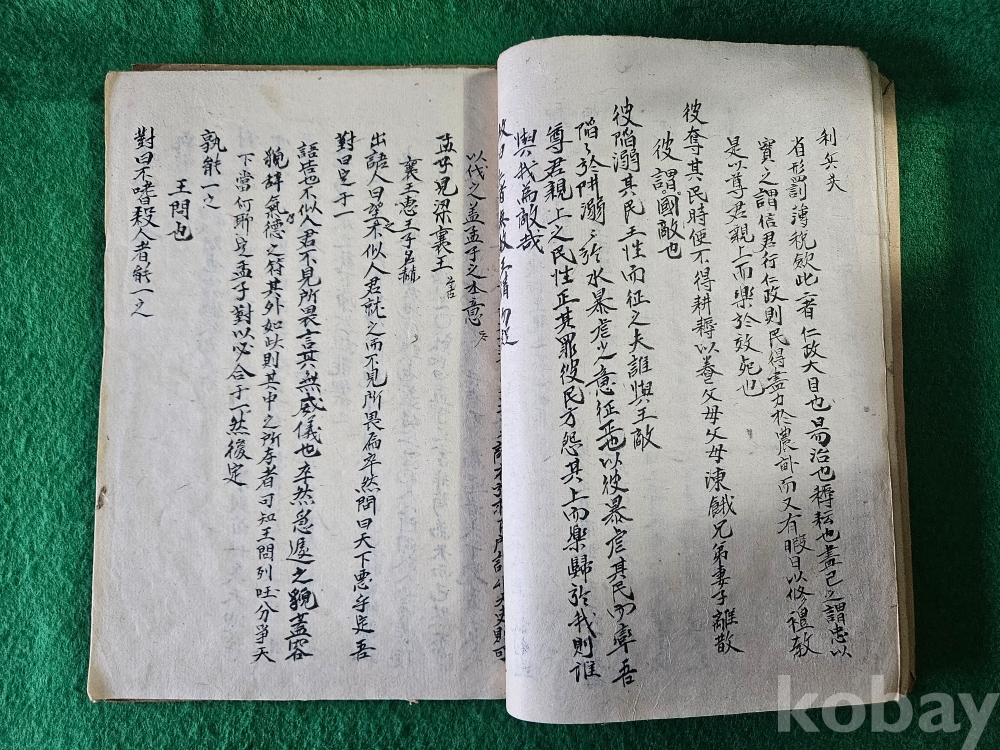 利兵矣
省刑罰薄稅歛此二者仁政大目也易治也耨耘也盡己之謂忠以
實之謂信君行仁政則民得盡力於農畝而又有暇日以修禮教
是以尊君親上而樂於效死也
彼奪其民時使不得耕耨以養父母父母凍餓兄弟妻子離散
彼謂國敵也
彼陷溺其民王性而征之夫誰與王敵
陷陷於阱溺溺於水暴虐之意征正也以彼暴虐其民而率吾
尊君親上之民性正其罪彼民方怨其上而樂歸於我則誰
與我為敵哉
以伐之盖孟子之本意
孟子見梁襄王
襄王惠王子名赫
出語人曰望之不似人君就之而不見所畏焉卒然問曰天下惡乎定吾
對曰定于一
語告也不似人君不見所畏言其無威儀也卒然急遽之貌盖容
貌辭氣德之符其外如此則其中之所存者可知王問列國分爭天
下當何所定孟子對以必合于一然後定
孰能一之
王問也
對曰不嗜殺人者能一之
kobay